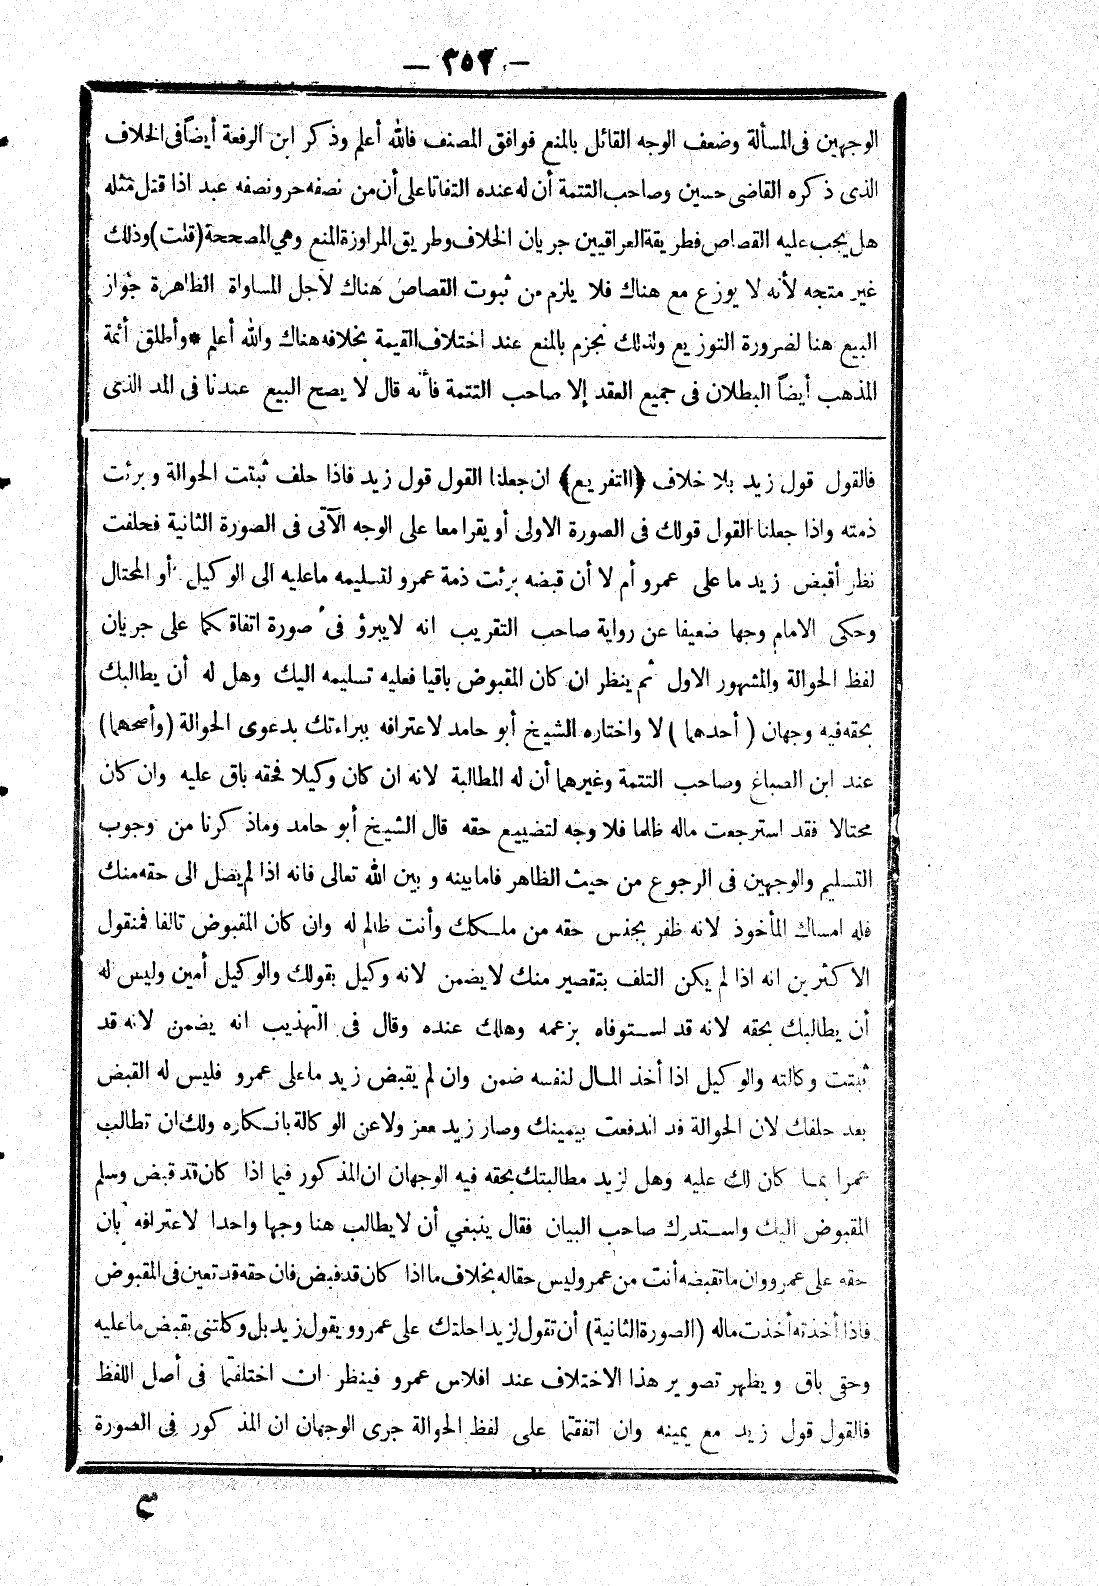 — ٣٥٢ —
الوجهين فى المسألة وضعف الوجه القائل بالمنع فوافق المصنف فالله أعلم وذكر ابن الرفعة أيضاً فى الخلاف
الذى ذكره القاضى حسين وصاحب التتمة أن له عنده التفاتا على أن من نصفه حر ونصفه عبد اذا قتل مثله
هل يجب عليه القصاص فطريقة العراقيين جريان الخلاف وطريق المراوزة المنع وهي المصححة (قلت) وذلك
غير متجه لأنه لا يوزع مع هناك فلا يلزم من ثبوت القصاص هناك لأجل المساواة الظاهرة جواز
البيع هنا لضرورة التوزيع ولذلك نجزم بالمنع عند اختلاف القيمة بخلافه هناك والله أعلم * وأطلق أئمة
المذهب أيضاً البطلان فى جميع العقد إلا صاحب التتمة فأنه قال لا يصح البيع عندنا فى المد الذى
فالقول قول زيد بلا خلاف ﴿التفريع﴾ ان جعلنا القول قول زيد فاذا حلف ثبتت الحوالة وبرئت
ذمته واذا جعلنا القول قولك فى الصورة الاولى أو يقرا معا على الوجه الآتى فى الصورة الثانية فحلفت
نظر أقبض زيد ما على عمرو أم لا أن قبضه برئت ذمة عمرو لتسليمه ماعليه الى الوكيل أو المحتال
وحكى الامام وجها ضعيفا عن رواية صاحب التقريب انه لايبرؤ فى صورة اتفاقكما على جريان
لفظ الحوالة والمشهور الاول ثم ينظر ان كان المقبوض باقيا فعليه تسليمه اليك وهل له أن يطالبك
بحقه فيه وجهان (أحدهما) لا واختاره الشيخ أبو حامد لاعترافه ببراءتك بدعوى الحوالة (وأصحهما)
عند ابن الصباغ وصاحب التتمة وغيرهما أن له المطالبة لانه ان كان وكيلا فحقه باق عليه وان كان
محتالا فقد استرجعت ماله ظلما فلا وجه لتضييع حقه قال الشيخ أبو حامد وماذكرنا من وجوب
التسليم والوجهين فى الرجوع من حيث الظاهر فامابينه وبين الله تعالى فانه اذا لم يصل الى حقه منك
فله امساك المأخوذ لانه ظفر بجنس حقه من ملكك وأنت ظالم له وان كان المقبوض تالفا فمنقول
الاكثرين انه اذا لم يكن التلف بتقصير منك لايضمن لانه وكيل بقولك والوكيل أمين وليس له
أن يطالبك بحقه لانه قد استوفاه بزعمه وهلك عنده وقال فى التهذيب انه يضمن لانه قد
ثبتت وكالته والوكيل اذا أخذ المال لنفسه ضمن وان لم يقبض زيد ماعلى عمرو فليس له القبض
بعد حلفك لان الحوالة قد اندفعت بيمينك وصار زيد معزولا عن الوكالة بانكاره ولك ان تطالب
عمرا بما كان لك عليه وهل لزيد مطالبتك بحقه فيه الوجهان المذكور فيما اذا كان قد قبض وسلم
المقبوض اليك واستدرك صاحب البيان فقال ينبغي أن لايطالب هنا وجها واحدا لاعترافه بان
حقه على عمرو وان ماتقبضه أنت من عمرو ليس حقاله بخلاف مااذا كان قد قبض فان حقه قد تعين فى المقبوض
فاذا أخذته أخذت ماله (الصورة الثانية) أن تقول لزيد احلتك على عمرو ويقول زيد بل وكلتنى بقبض ماعليه
وحقى باق ويظهر تصوير هذا الاختلاف عند افلاس عمرو فينظر ان اختلفتما فى أصل اللفظ
فالقول قول زيد مع يمينه وان اتفقتما على لفظ الحوالة جرى الوجهان المذكور فى الصورة